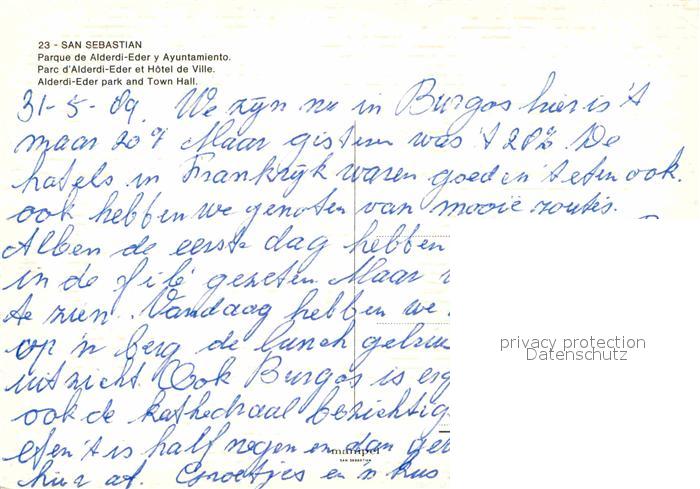 23 - SAN SEBASTIAN
Parque de Alderdi-Eder y Ayuntamiento.
Parc d'Alderdi-Eder et Hôtel de Ville.
Alderdi-Eder park and Town Hall.
31-5-89. We zijn nu in Burgos hier is 't
maar 20° Maar gisteren was 't 28°. De
hotels in Frankrijk waren goed en 't eten ook.
ook hebben we genoten van mooie routes.
Alleen de eerste dag hebben
in de filé gezeten. Maar
te zien. Vandaag hebben we
op 'n berg de lunch
uitzicht. Ook Burgos is
ook de kathedraal bezichtig
eten 't is half negen en dan
hier af. Groetjes en 'n kus
privacy protection
Datenschutz
manipel
SAN SEBASTIAN